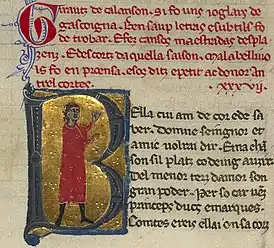 Girautz de calanson. si fo uns ioglars de
gascoigna. Ben saup letras e subtils fo
de trobar. E fez cansos maestradas desplaz
zenz. E descortz da quella saison. Mal abelliua
is fo en proensa. e sos ditz e petit ac de nom en
tre·l cortes.
.xxxvii.
Bella cui am de cor e de sa
ber. Domne seingnor et
amic uolrai dir. En a chan
son sil platz co deing auzir
Del menor terz damor son
gran poder. Per so car uenz
princeps ducs e marques.
Comtes e reis e lai on sa cort